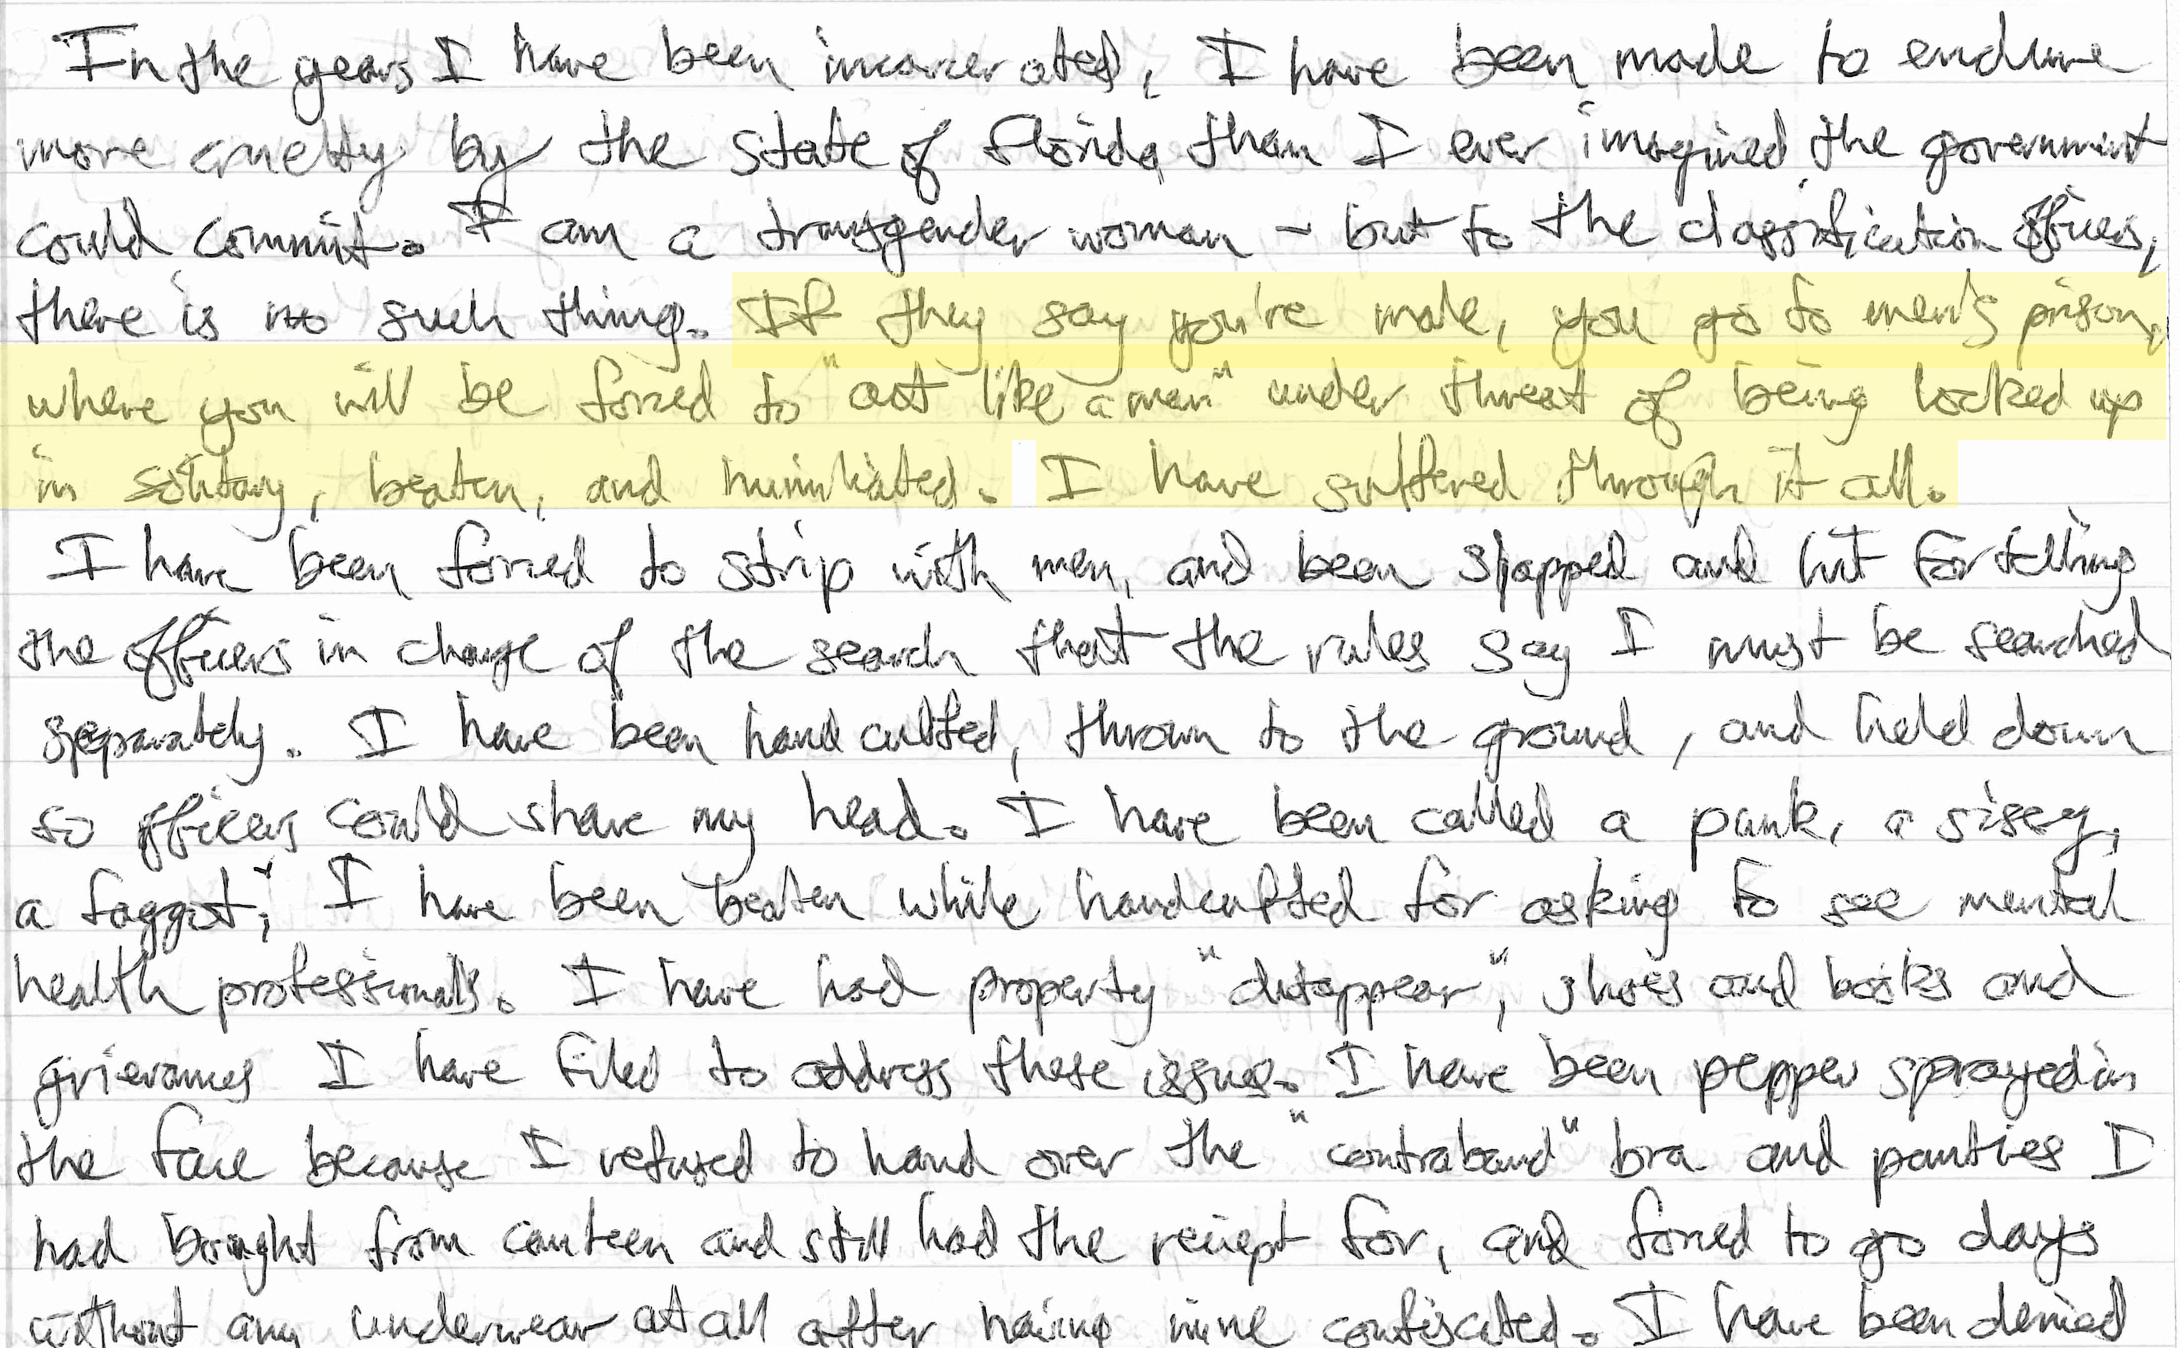 In the years I have been incarcerated, I have been made to endure
more cruelty by the state of Florida than I ever imagined the government
could commit. I am a transgender woman - but to the classification officers,
there is no such thing. If they say you're male, you go to men's prison,
where you will be forced to "act like a man" under threat of being locked up
in solitary, beaten, and humiliated. I have suffered through it all.
I have been forced to strip with men, and been slapped and hit for telling
the officers in charge of the search that the rules say I must be searched
separately. I have been handcuffed, thrown to the ground, and held down
so officers could shave my head. I have been called a punk, a sissy,
a faggot; I have been beaten while handcuffed for asking to see mental
health professionals. I have had property "disappear", shoes and books and
grievances I have filed to address these issues. I have been pepper sprayed in
the face because I refused to hand over the "contraband" bra and panties I
had bought from canteen and still had the reciept for, and forced to go days
without any underwear at all after having mine confiscated. I have been denied